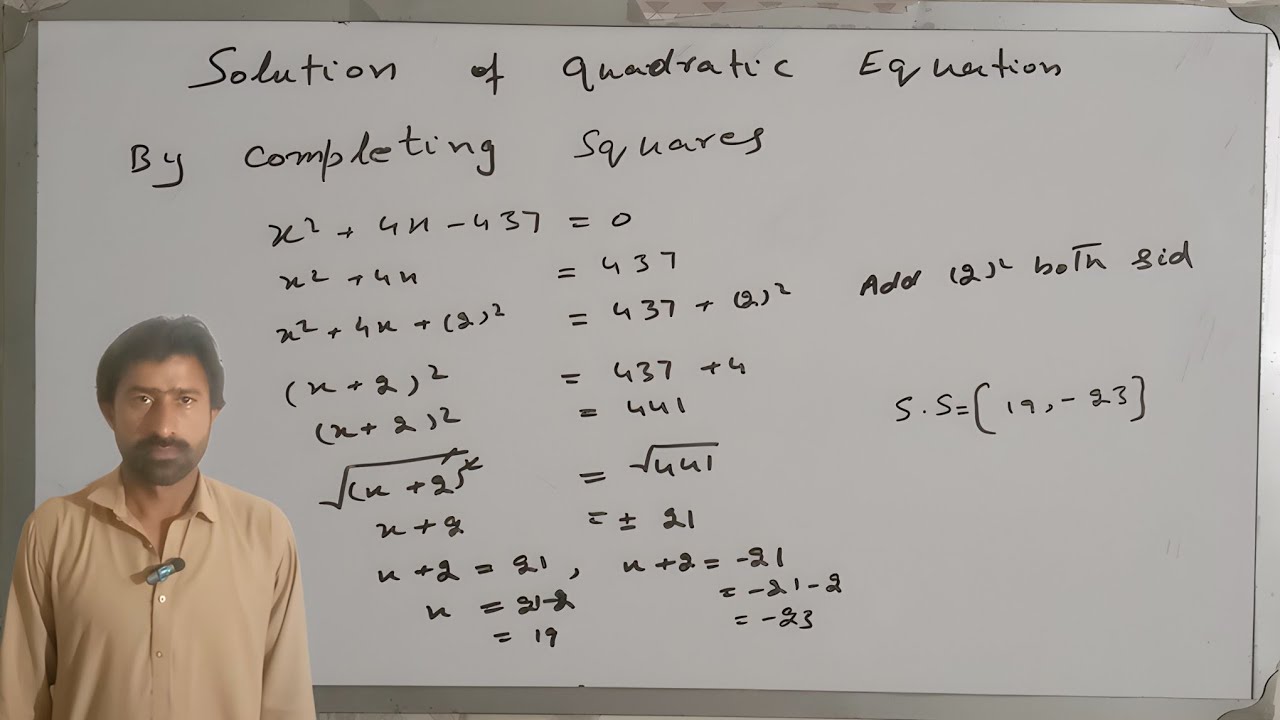 Solution of quadratic Equation
By completing Squares
x² + 4x - 437 = 0
x² + 4x = 437
Add (2)² both sid
x² + 4x + (2)² = 437 + (2)²
(x + 2)² = 437 + 4
(x + 2)² = 441
S.S = [19, -23]
√(x + 2)² = √441
x + 2 = ± 21
x + 2 = 21, x + 2 = -21
x = 21-2 = -21-2
= 19 = -23